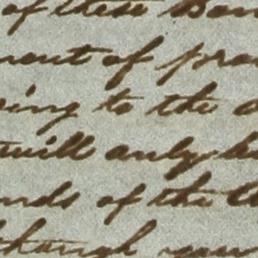 of these Ban
ment of pra
ing to the
will only
nds of the
though your